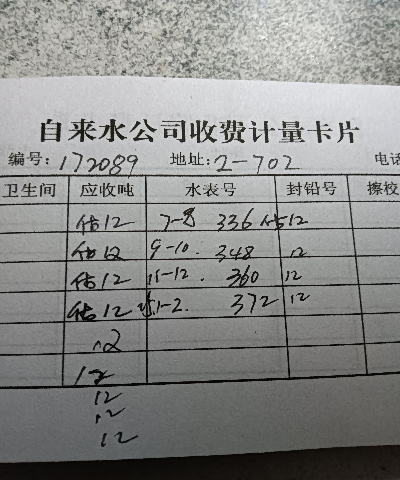 自来水公司收费计量卡片
编号: 172089 地址: 2-702 电话
卫生间 应收吨 水表号 封铅号 擦校
估12 7-8 336 估12
估12 9-10. 348 12
估12 11-12. 360 12
估12 1-2. 372 12
12
12
12
12
12